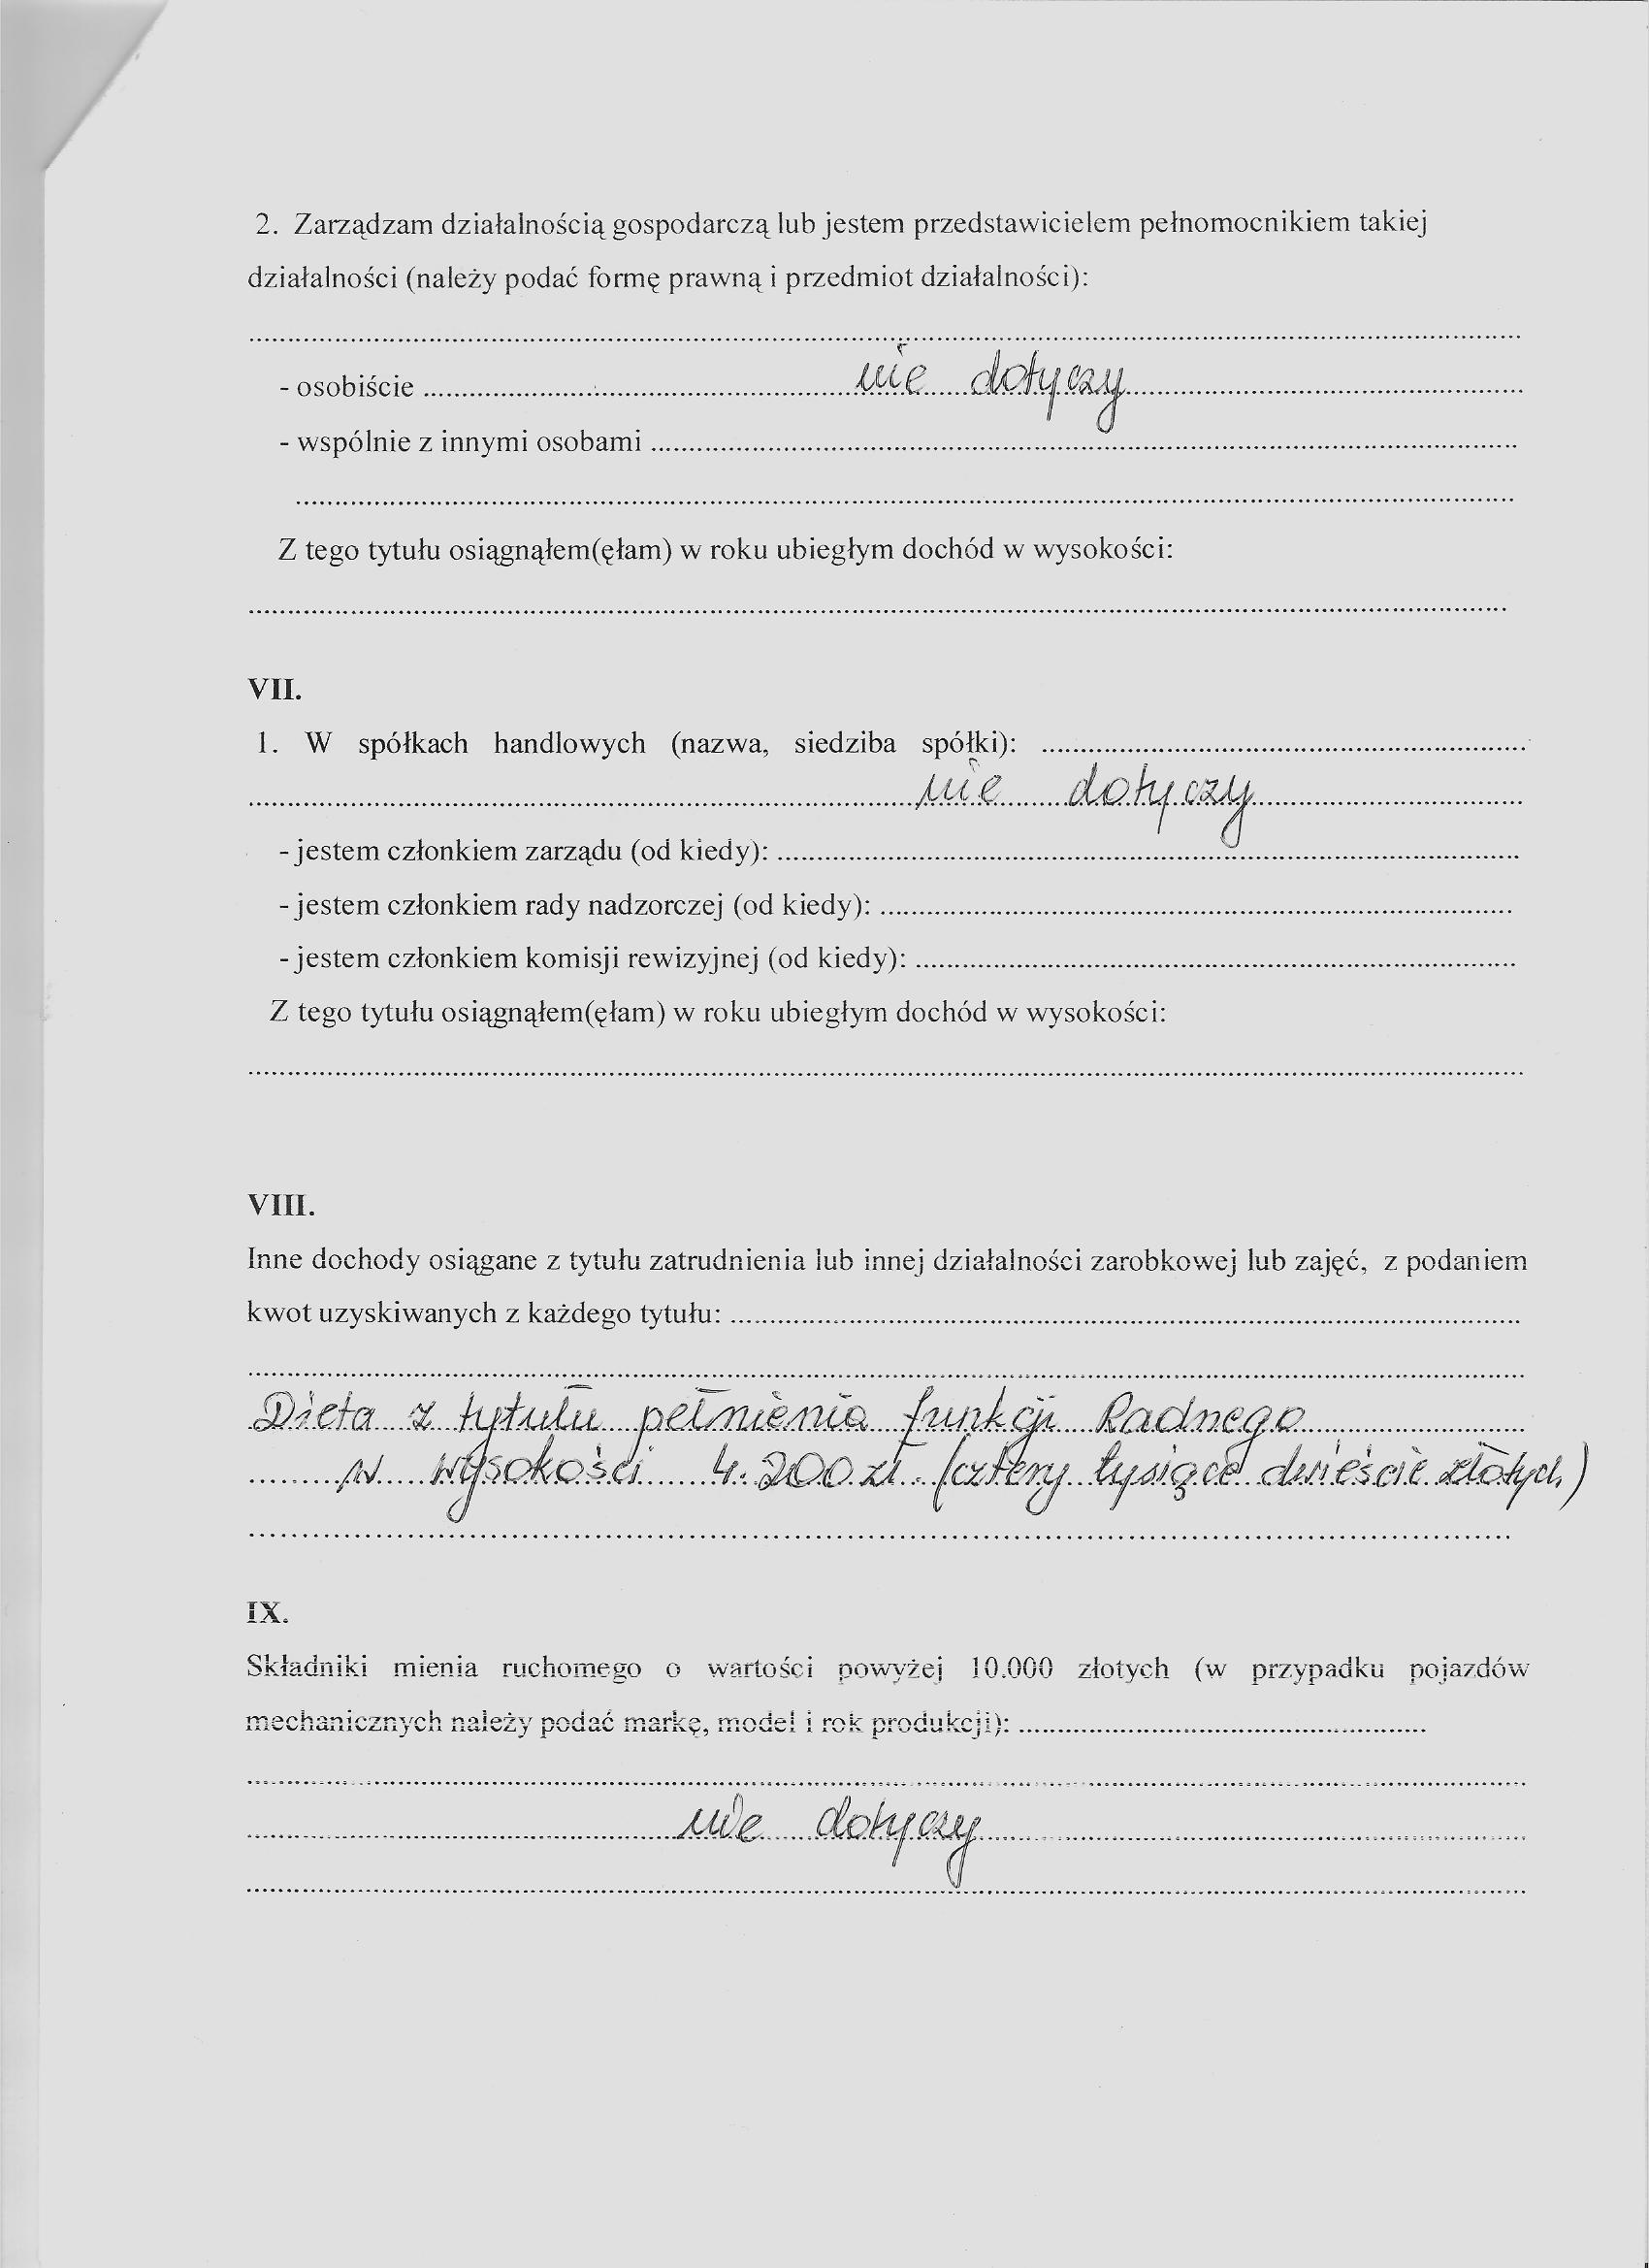 2. Zarządzam działalnością gospodarczą lub jestem przedstawicielem pełnomocnikiem takiej
działalności (należy podać formę prawną i przedmiot działalności):
- osobiście nie dotyczy
- wspólnie z innymi osobami
Z tego tytułu osiągnąłem(ęłam) w roku ubiegłym dochód w wysokości:
VII.
1. W spółkach handlowych (nazwa, siedziba spółki):
nie dotyczy
- jestem członkiem zarządu (od kiedy):
- jestem członkiem rady nadzorczej (od kiedy):
- jestem członkiem komisji rewizyjnej (od kiedy):
Z tego tytułu osiągnąłem(ęłam) w roku ubiegłym dochód w wysokości:
VIII.
Inne dochody osiągane z tytułu zatrudnienia lub innej działalności zarobkowej lub zajęć, z podaniem
kwot uzyskiwanych z każdego tytułu:
Dieta z tytułu pełnienia funkcji Radnego
w wysokości 4.200 zł. (cztery tysiące dwieście złotych)
IX.
Składniki mienia ruchomego o wartości powyżej 10.000 złotych (w przypadku pojazdów
mechanicznych należy podać markę, model i rok produkcji):
nie dotyczy